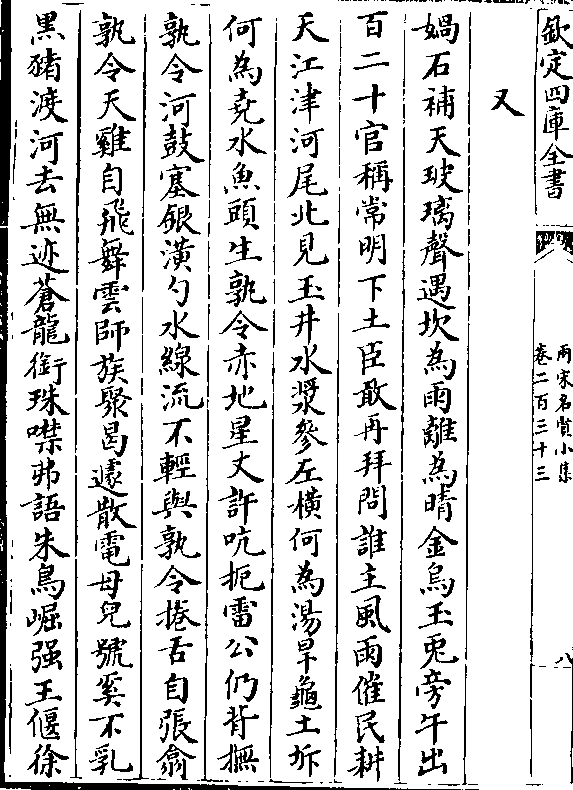 欽定四庫全書
兩宋名賢小集
卷二百三十三
八
又
媧石補天玻璃聲遇坎為雨離為晴金烏玉兎旁午出
百二十官稱常明下土臣敢再拜問誰主風雨催民耕
天江津河尾北見玉井水漿參左橫何為湯旱龜土坼
何為堯水魚頭生孰令赤地星丈許吭扼雷公仍背撫
孰令河鼓塞銀潢勺水線流不輕與孰令捲舌自張翕
孰令天雞自飛舞雲師族聚曷遽散電母兒號奚不乳
黑豬渡河去無迹蒼龍銜珠噤弗語朱鳥崛强王偃徐